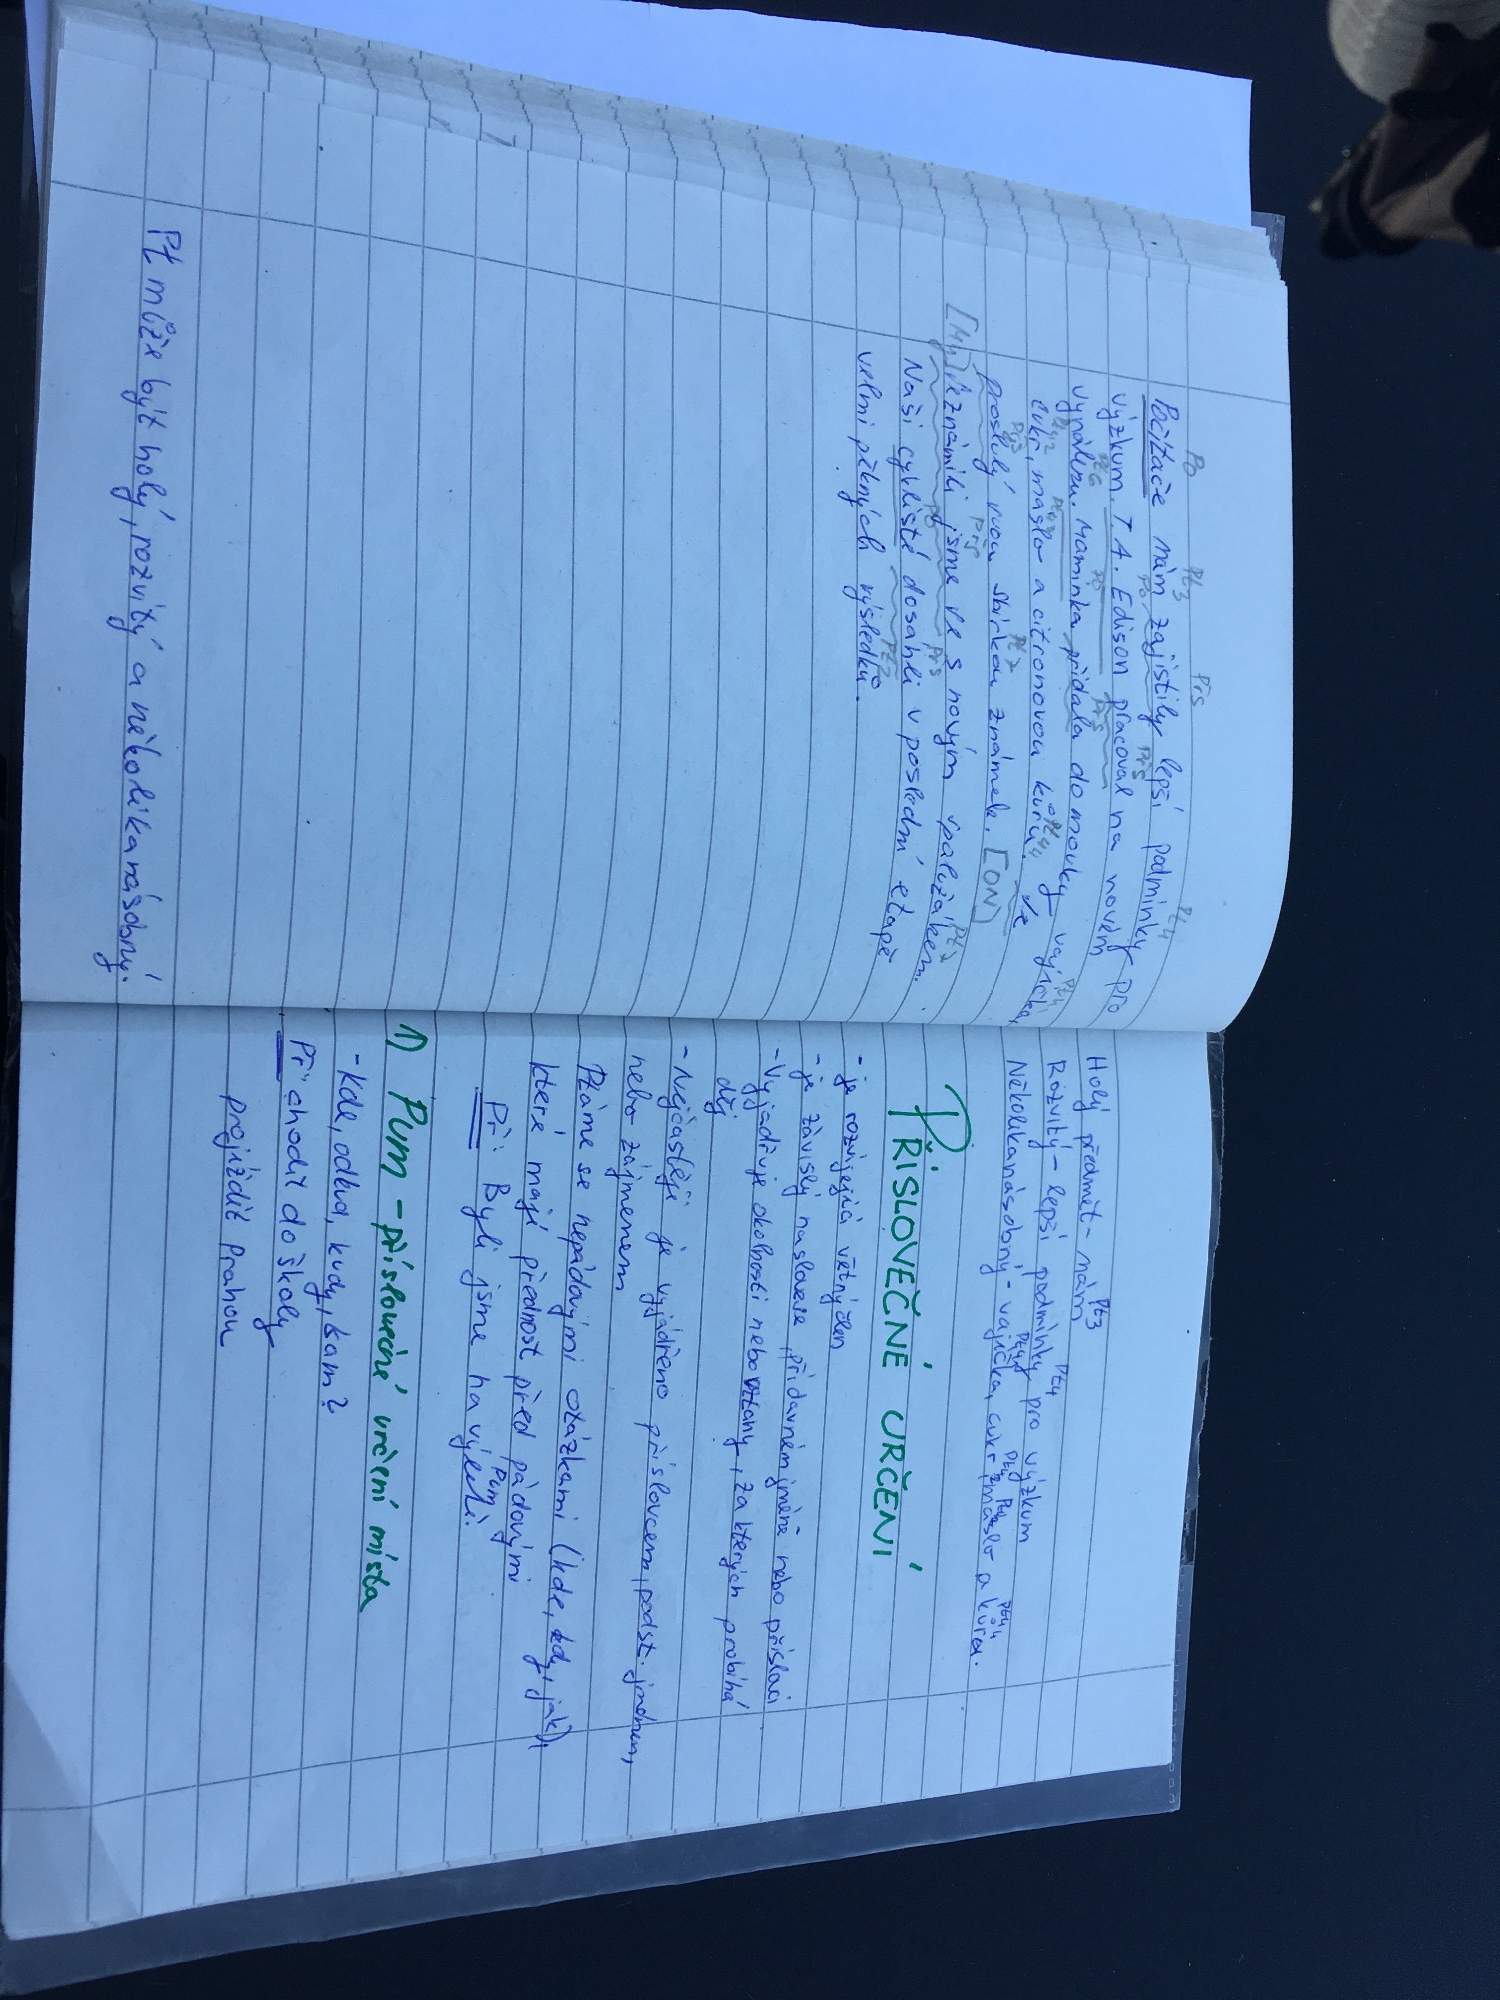 Po Pt3 Přs Pt4
Počítače nám zajistily lepší podmínky pro
výzkum. T. A. Edison pracoval na novém
vynálezu. Maminka přidala do mouky vajíčka,
cukr, máslo a citronovou kůru.
proslulý svou sbírkou známek. [ON]
[My] seznámili jsme se s novým spolužákem.
Naši cyklisté dosáhli v poslední etapě
velmi pěkných výsledků.
Pt může být holý, rozvitý a několikanásobný.
Holý předmět - nám Pt3
Rozvitý - lepší podmínky pro výzkum Pt4
Několikanásobný - vajíčka, cukr, máslo a kůra.
PŘÍSLOVEČNÉ URČENÍ
- je rozvíjející větný člen
- je závislý na slovese, přídavném jméně nebo příslovci
- Vyjadřuje okolnosti nebo vztahy, za kterých probíhá
děj
- Nejčastěji je vyjádřeno příslovcem, podst. jménem,
nebo zájmenem
Ptáme se nepádovými otázkami (kde, kdy, jak),
které mají přednost před pádovými
Př: Byli jsme na výletě. Pum
1) Pum - příslovečné určení místa
- Kde, odkud, kudy, kam?
Př: chodit do školy
projíždět Prahou